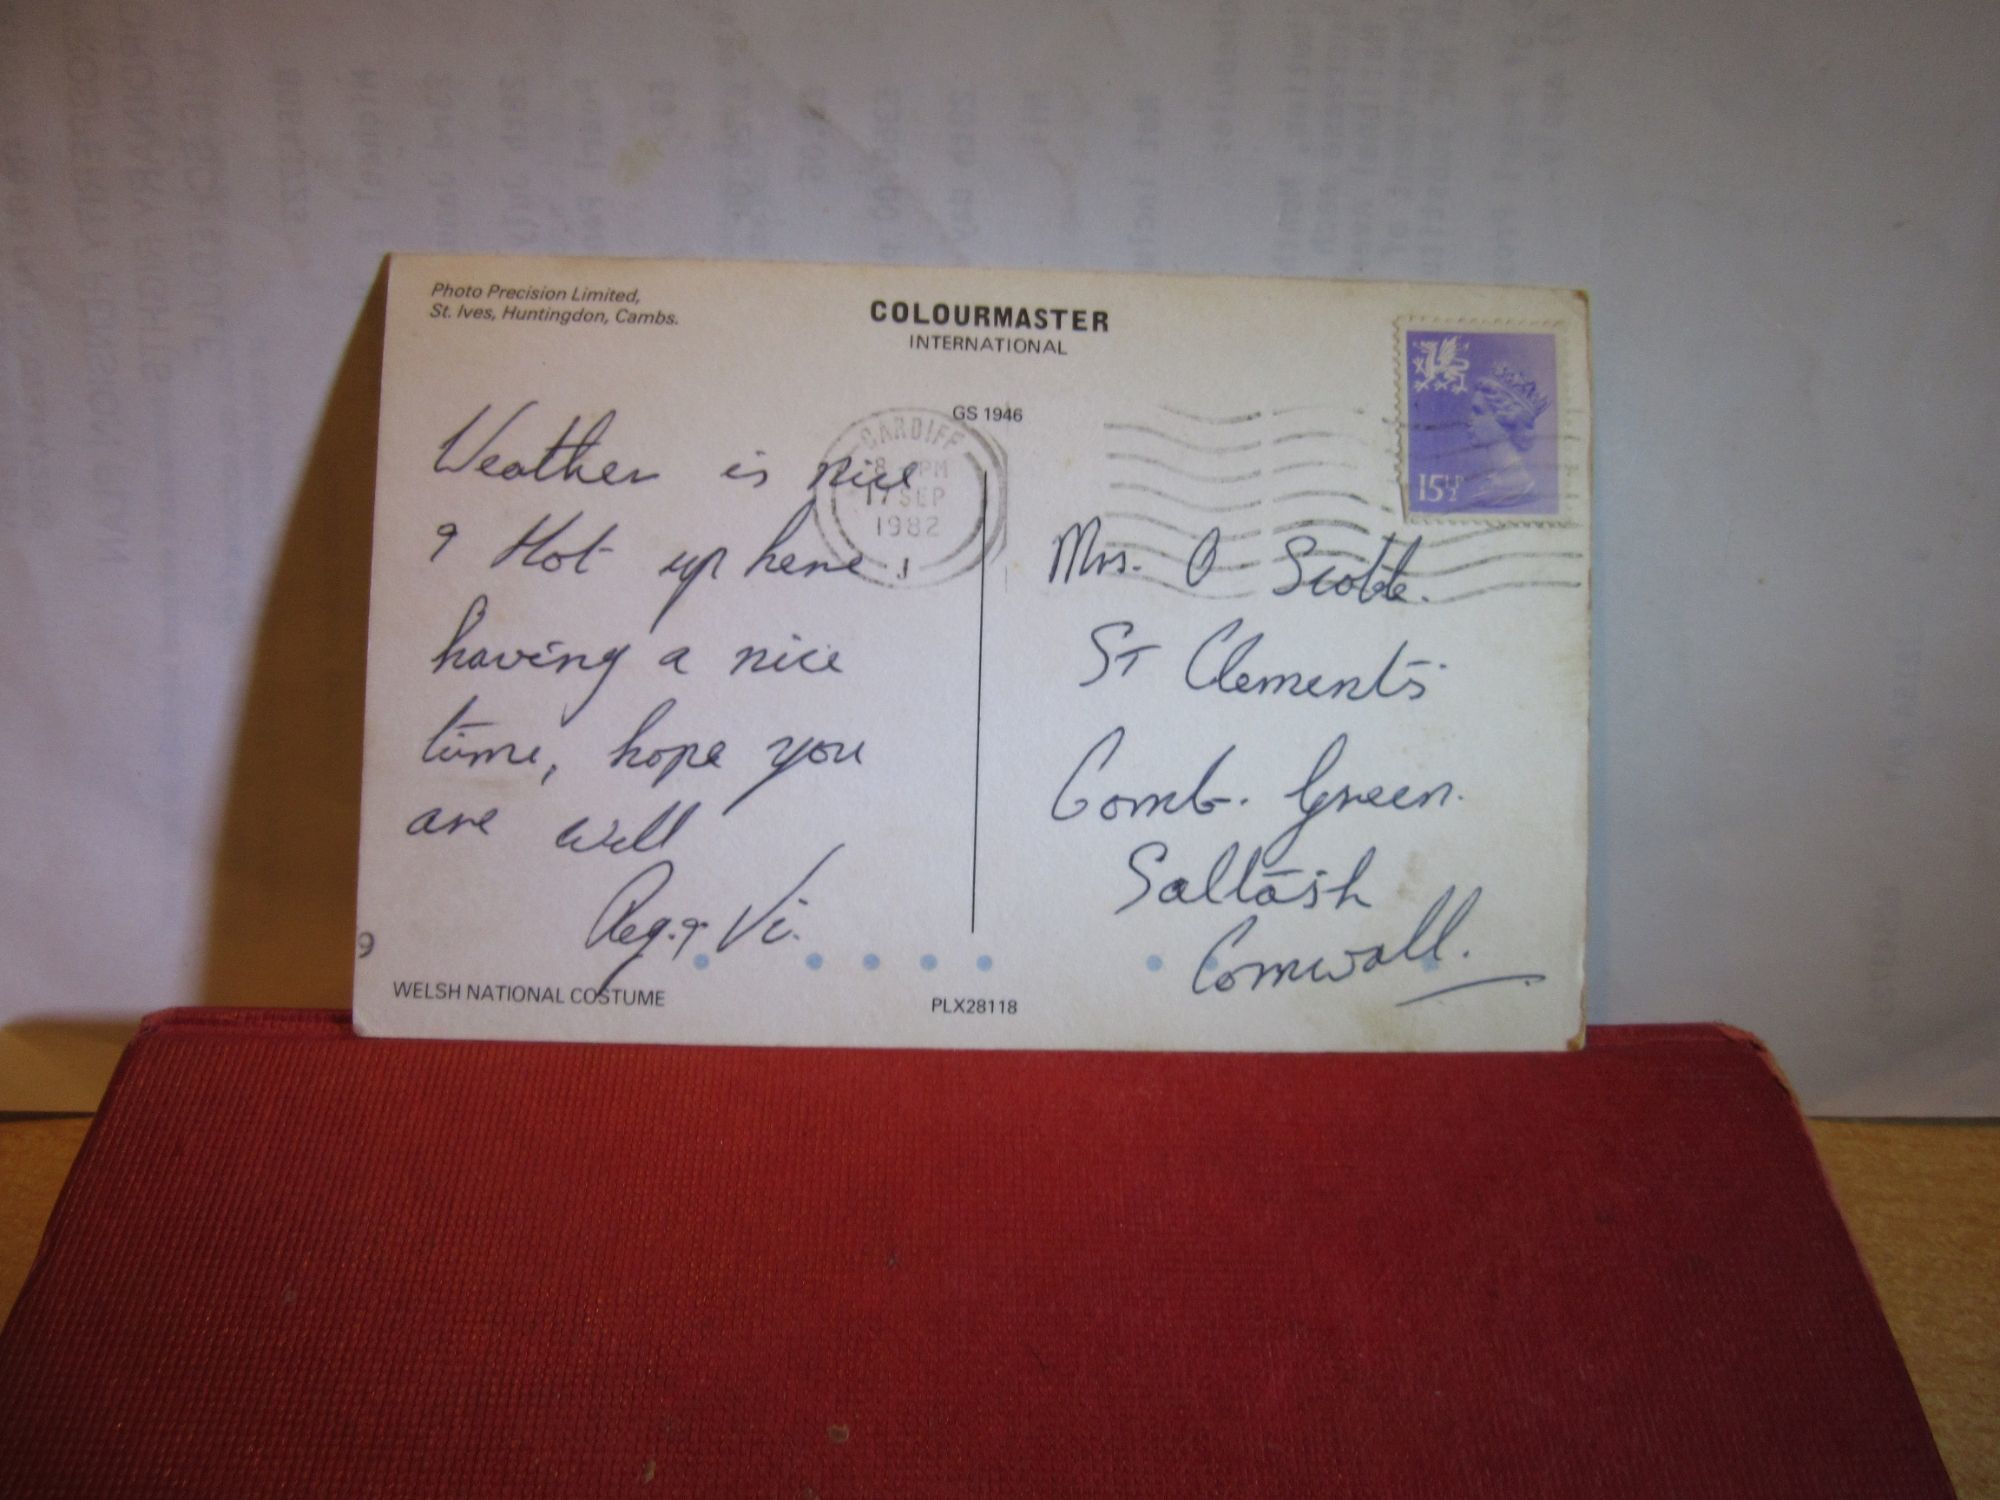 Photo Precision Limited,
St. Ives, Huntingdon, Cambs.
COLOURMASTER
INTERNATIONAL
GS 1946
CARDIFF
8 PM
17 SEP
1982
15½P
Weather is nice
& Hot up here,
having a nice
time, hope you
are well
Reg. & Vi.
Mrs. O
St Clements
Comb. Green.
Saltash
Cornwall.
9
WELSH NATIONAL COSTUME
PLX28118